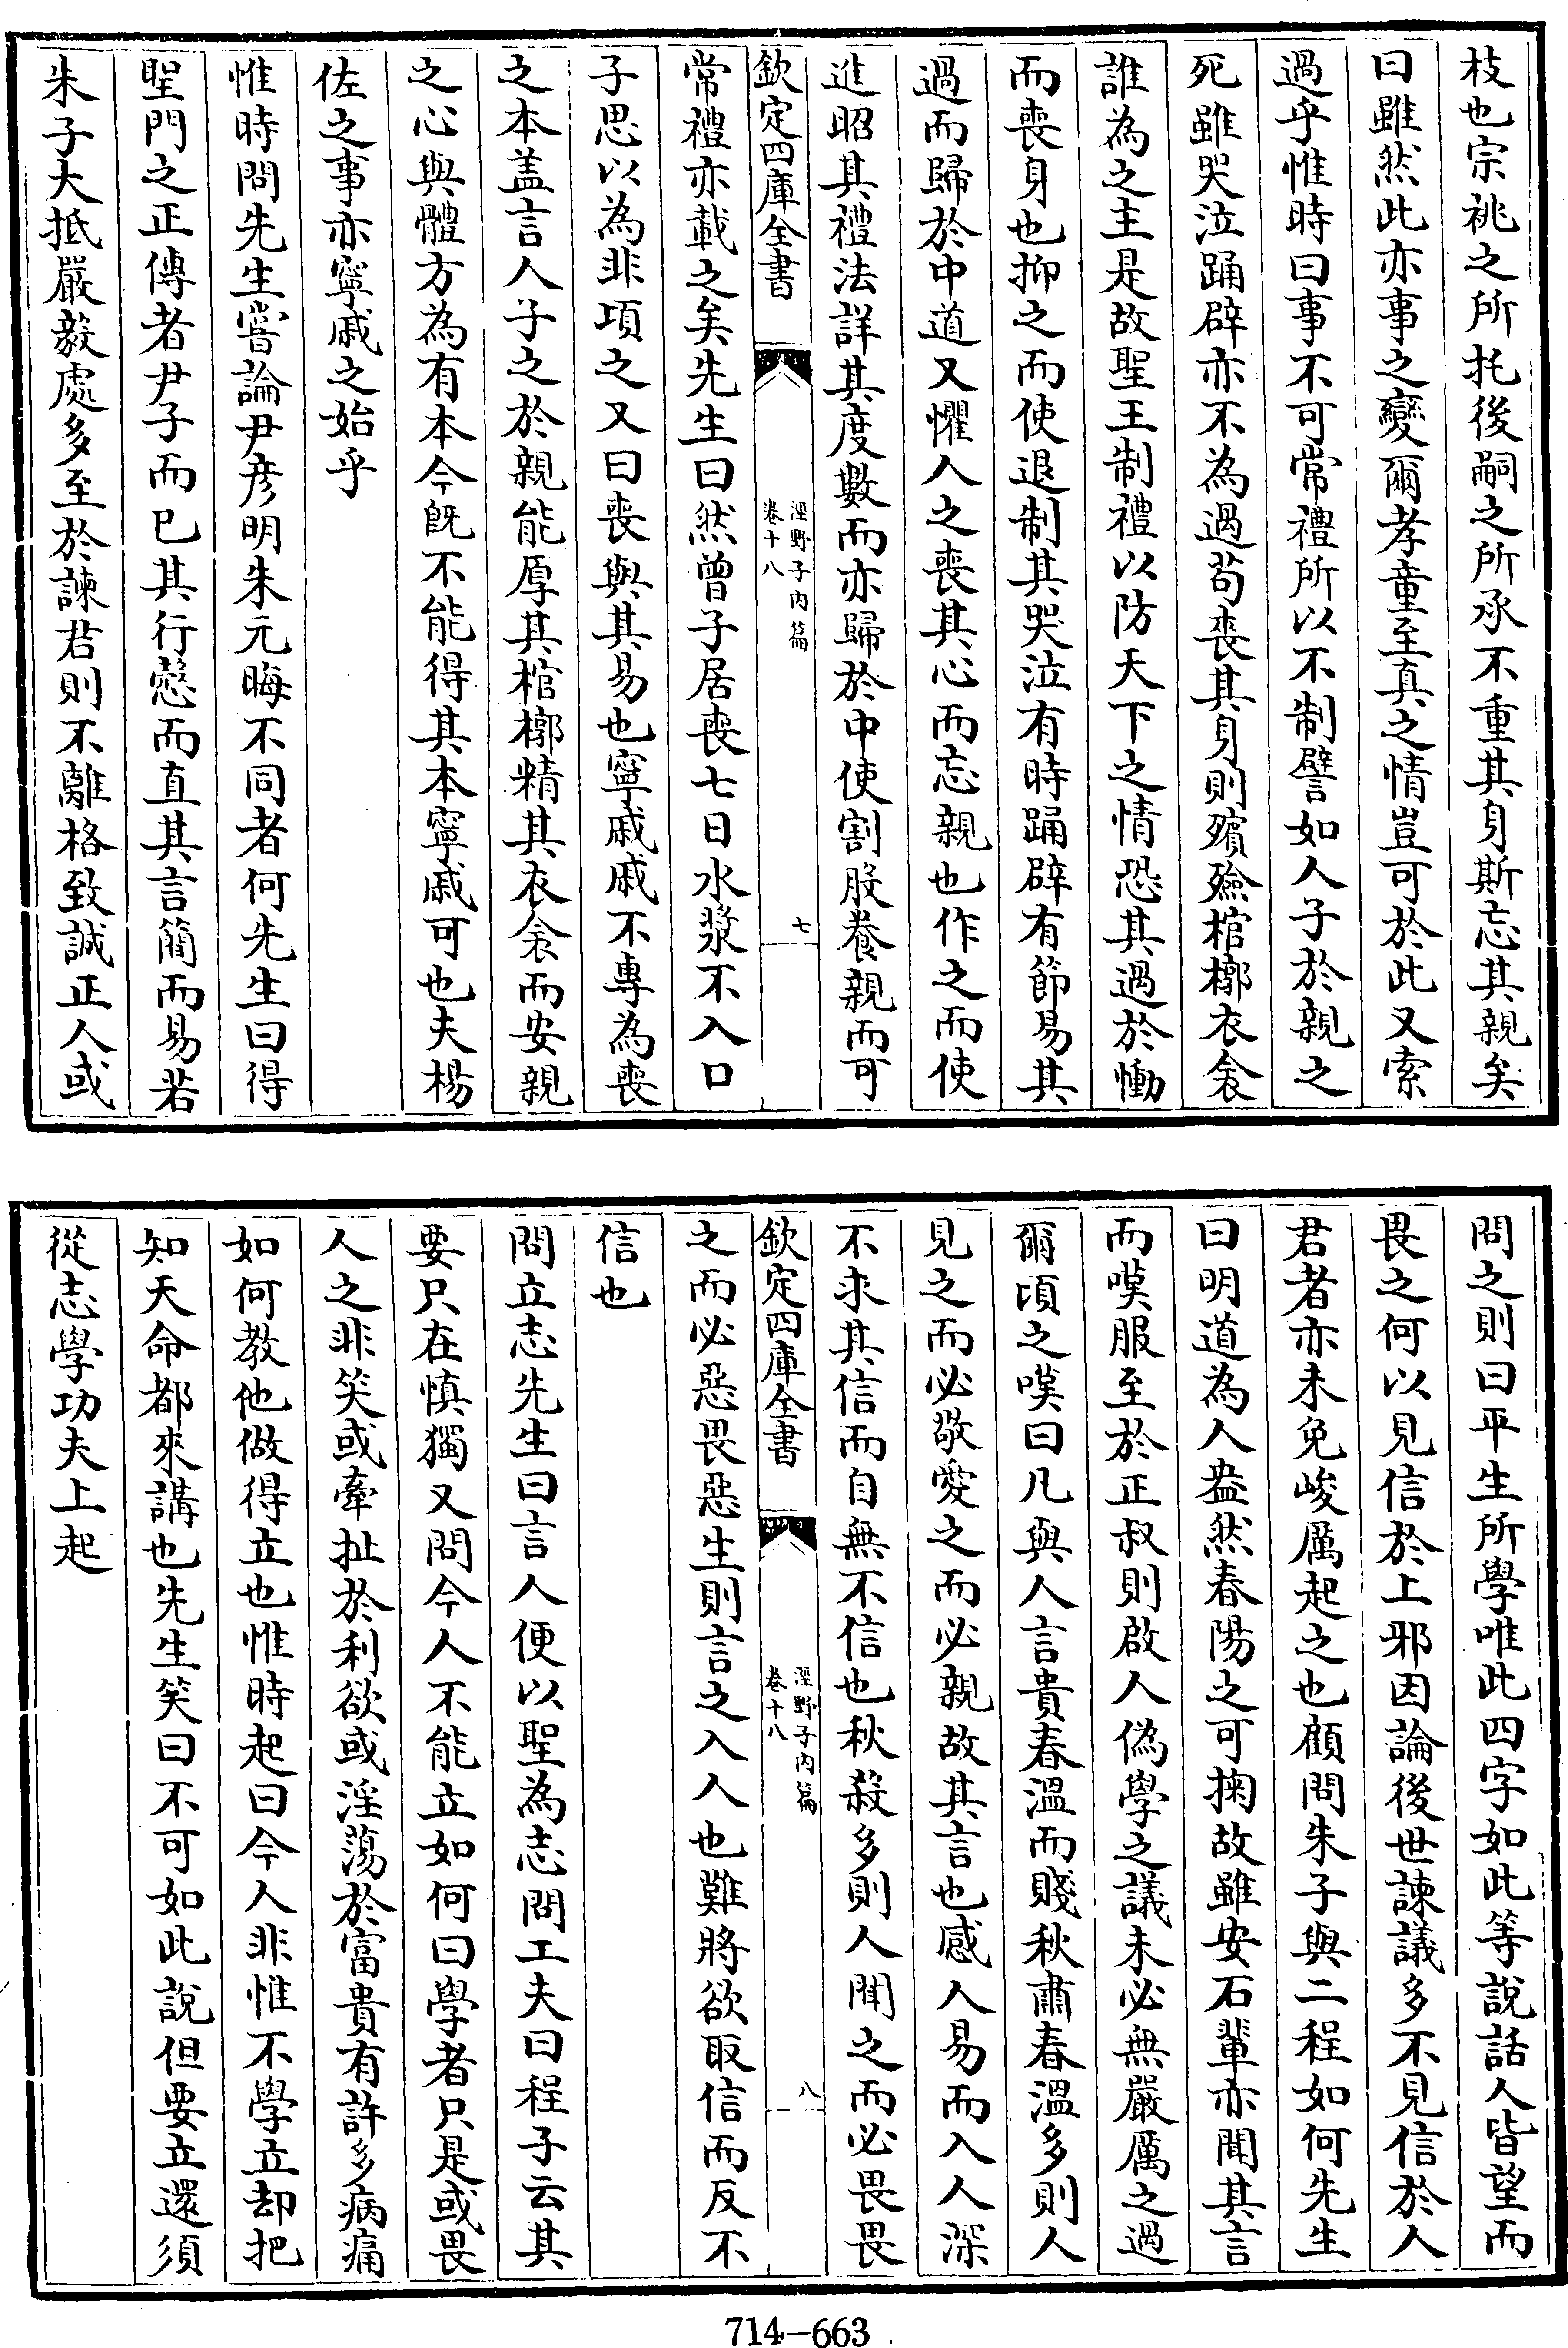 枝也宗祧之所托後嗣之所承不重其身斯忘其親矣
曰雖然此亦事之變爾孝童至真之情豈可於此又索
過乎惟時曰事不可常禮所以不制譬如人子於親之
死雖哭泣踊辟亦不為過苟喪其身則殯殮棺槨衣衾
誰為之主是故聖王制禮以防天下之情恐其過於慟
而喪身也抑之而使退制其哭泣有時踊辟有節易其
過而歸於中道又懼人之喪其心而忘親也作之而使
進昭其禮法詳其度數而亦歸於中使割股養親而可
欽定四庫全書
涇野子內篇
卷十八
七
常禮亦載之矣先生曰然曾子居喪七日水漿不入口
子思以為非頃之又曰喪與其易也寧戚戚不專為喪
之本盖言人子之於親能厚其棺槨精其衣衾而安親
之心與體方為有本今既不能得其本寧戚可也夫楊
佐之事亦寧戚之始乎
惟時問先生嘗論尹彥明朱元晦不同者何先生曰得
聖門之正傳者尹子而已其行慤而直其言簡而易若
朱子大抵嚴毅處多至於諫君則不離格致誠正人或
問之則曰平生所學唯此四字如此等說話人皆望而
畏之何以見信於上邪因論後世諫議多不見信於人
君者亦未免峻厲起之也顧問朱子與二程如何先生
曰明道為人盎然春陽之可掬故雖安石輩亦聞其言
而嘆服至於正叔則啟人偽學之議未必無嚴厲之過
爾頃之嘆曰凡與人言貴春溫而賤秋肅春溫多則人
見之而必敬愛之而必親故其言也感人易而入人深
不求其信而自無不信也秋殺多則人聞之而必畏畏
欽定四庫全書
涇野子內篇
卷十八
八
之而必惡畏惡生則言之入人也難將欲取信而反不
信也
問立志先生曰言人便以聖為志問工夫曰程子云其
要只在慎獨又問今人不能立如何曰學者只是或畏
人之非笑或牽扯於利欲或淫蕩於富貴有許多病痛
如何教他做得立也惟時起曰今人非惟不學立却把
知天命都來講也先生笑曰不可如此說但要立還須
從志學功夫上起
714-663